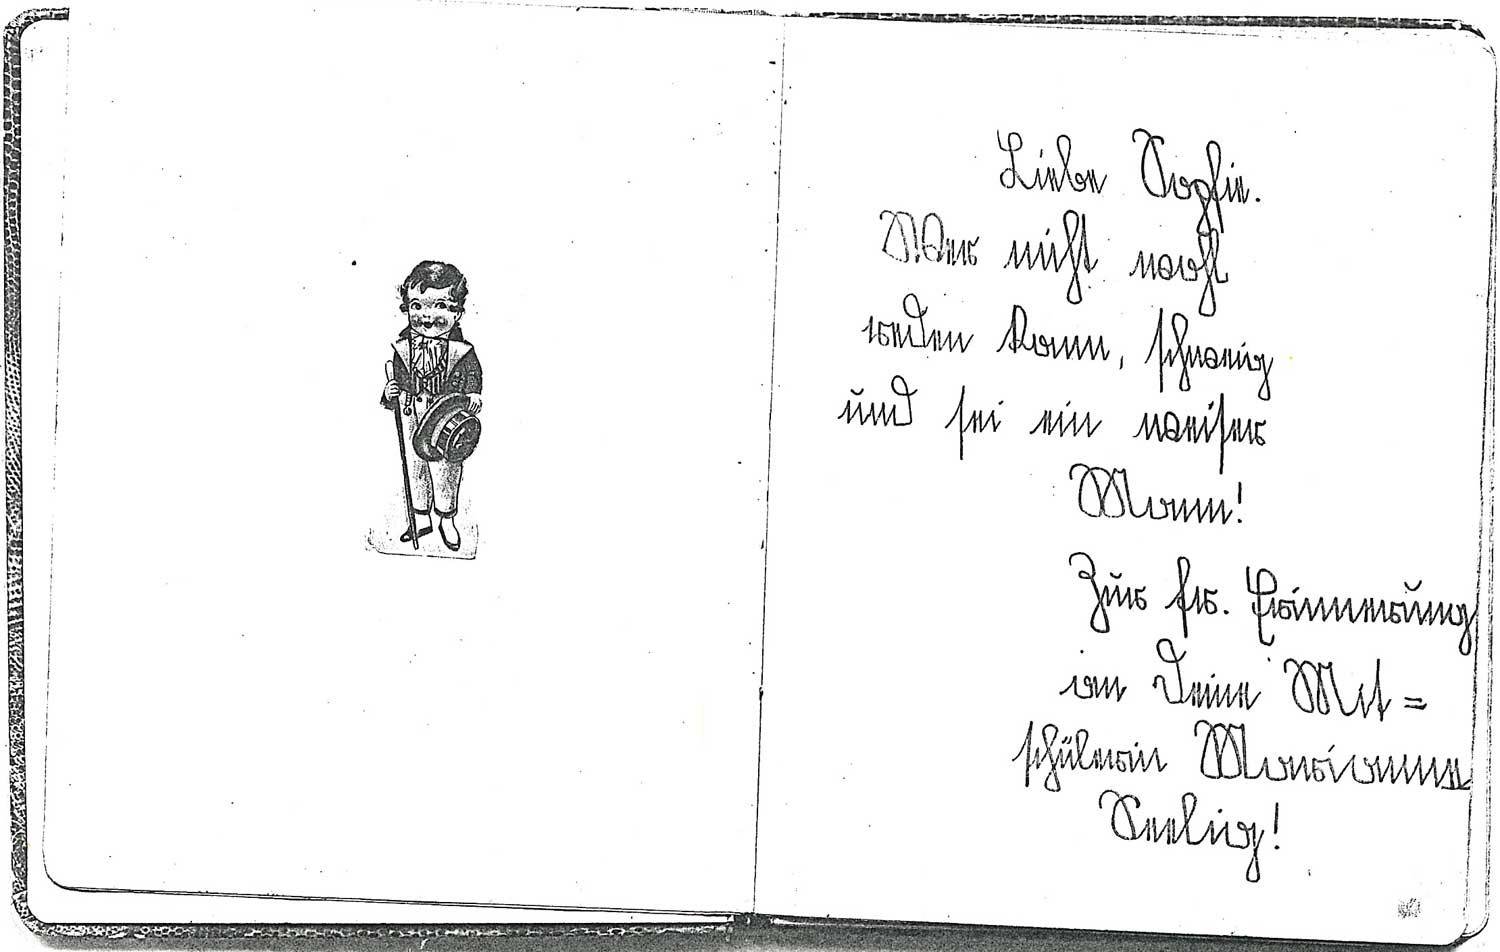 Liebe Sophie.
Wer nicht wohl
reden kann, schweig
und sei ein weiser
Mann!
Zur fr. Erinnerung
an Deine Mit=
schülerin Marianne
Seelig!